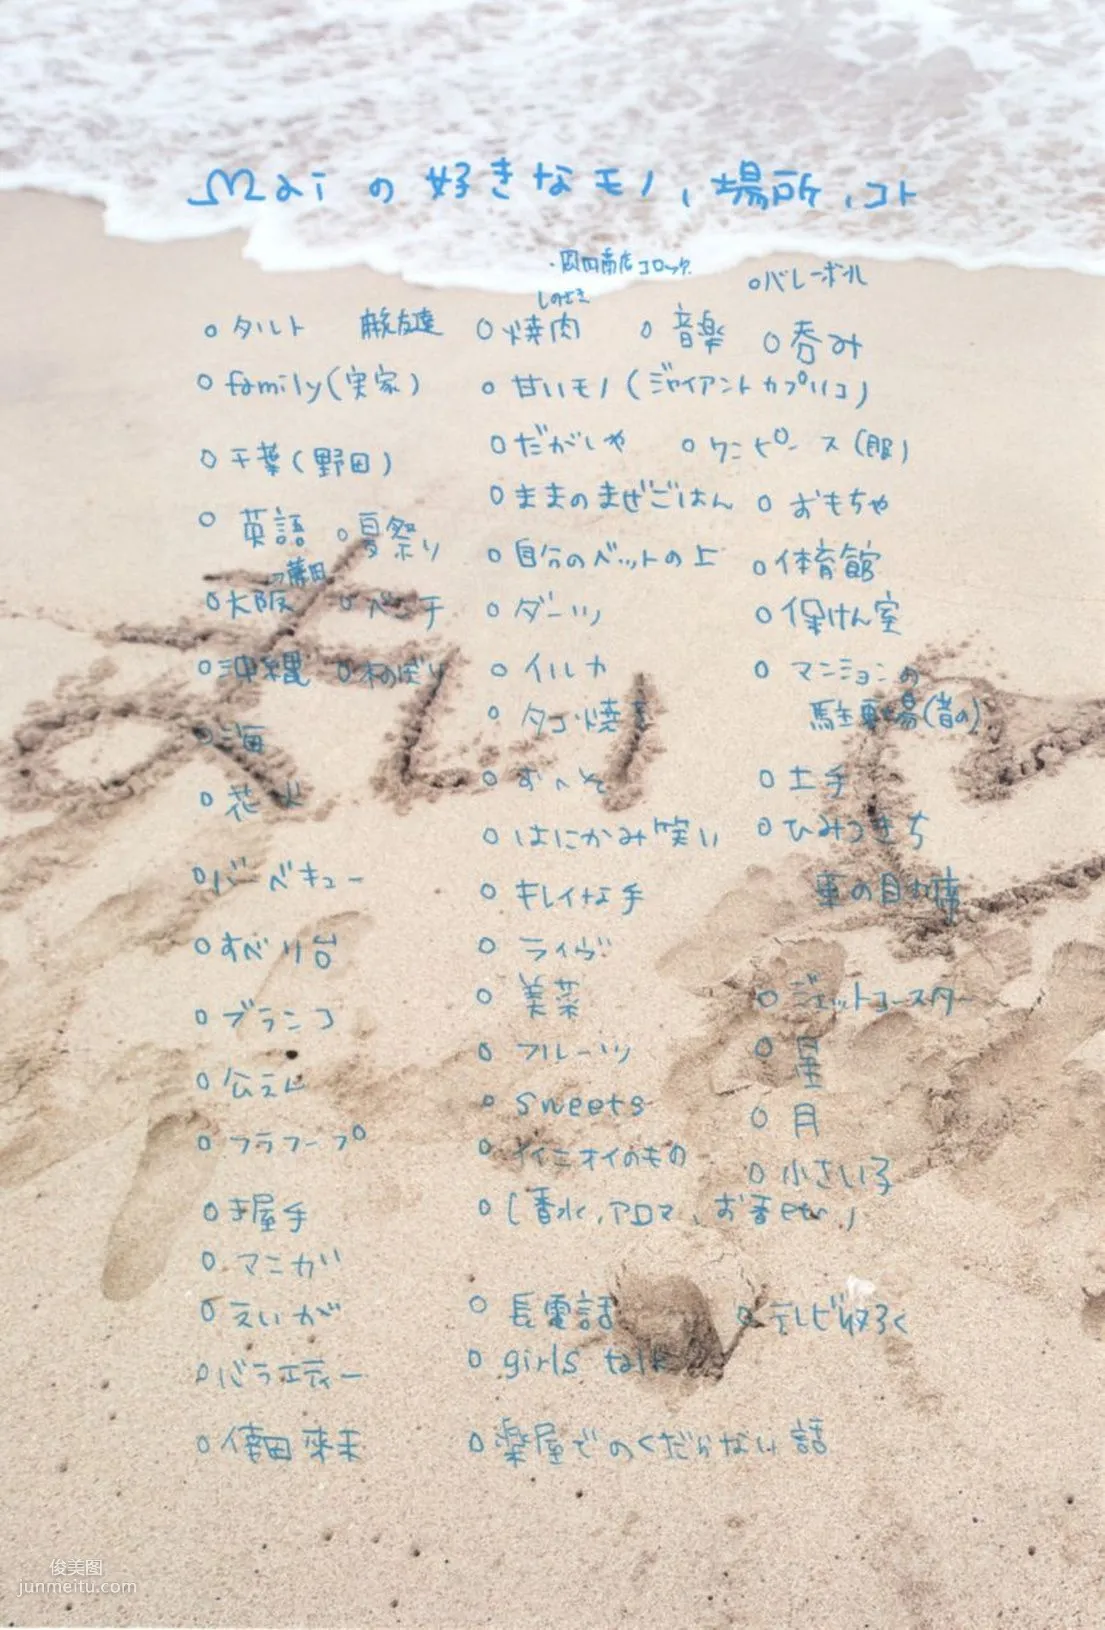 Maiの好きなモノ、場所、コト
・岡田商店コロッケ
○バレーボール
○タルト
○焼肉
○音楽
○呑み
○family(実家)
○甘いモノ(ジャイアントカプリコ)
○千葉(野田)
○だがしや
○ワンピース(服)
○ままのまぜごはん
○おもちゃ
○英語
○夏祭り
○自分のベットの上
○体育館
○大阪
○ベンチ
○ダーツ
○保けん室
○沖縄
○木のぼり
○イルカ
○マンションの
駐車場(昔の)
○海
○タコ焼き
○花火
○おへそ
○土手
○はにかみ笑い
○ひみつきち
○バーベキュー
○キレイな手
車の自分席
○すべり台
○ライヴ
○美菜
○ジェットコースター
○ブランコ
○フルーツ
○星
○公えん
○sweets
○月
○フラフープ
○イイニオイのもの
○小さい子
○(香水、アロマ、お香etc.)
○き屋手
○マンガ
○えいが
○長電話
○テレビ収ろく
○girls talk
○バラエティー
○倖田來未
○楽屋でのくだらない話
俊美图
junmeitu.com